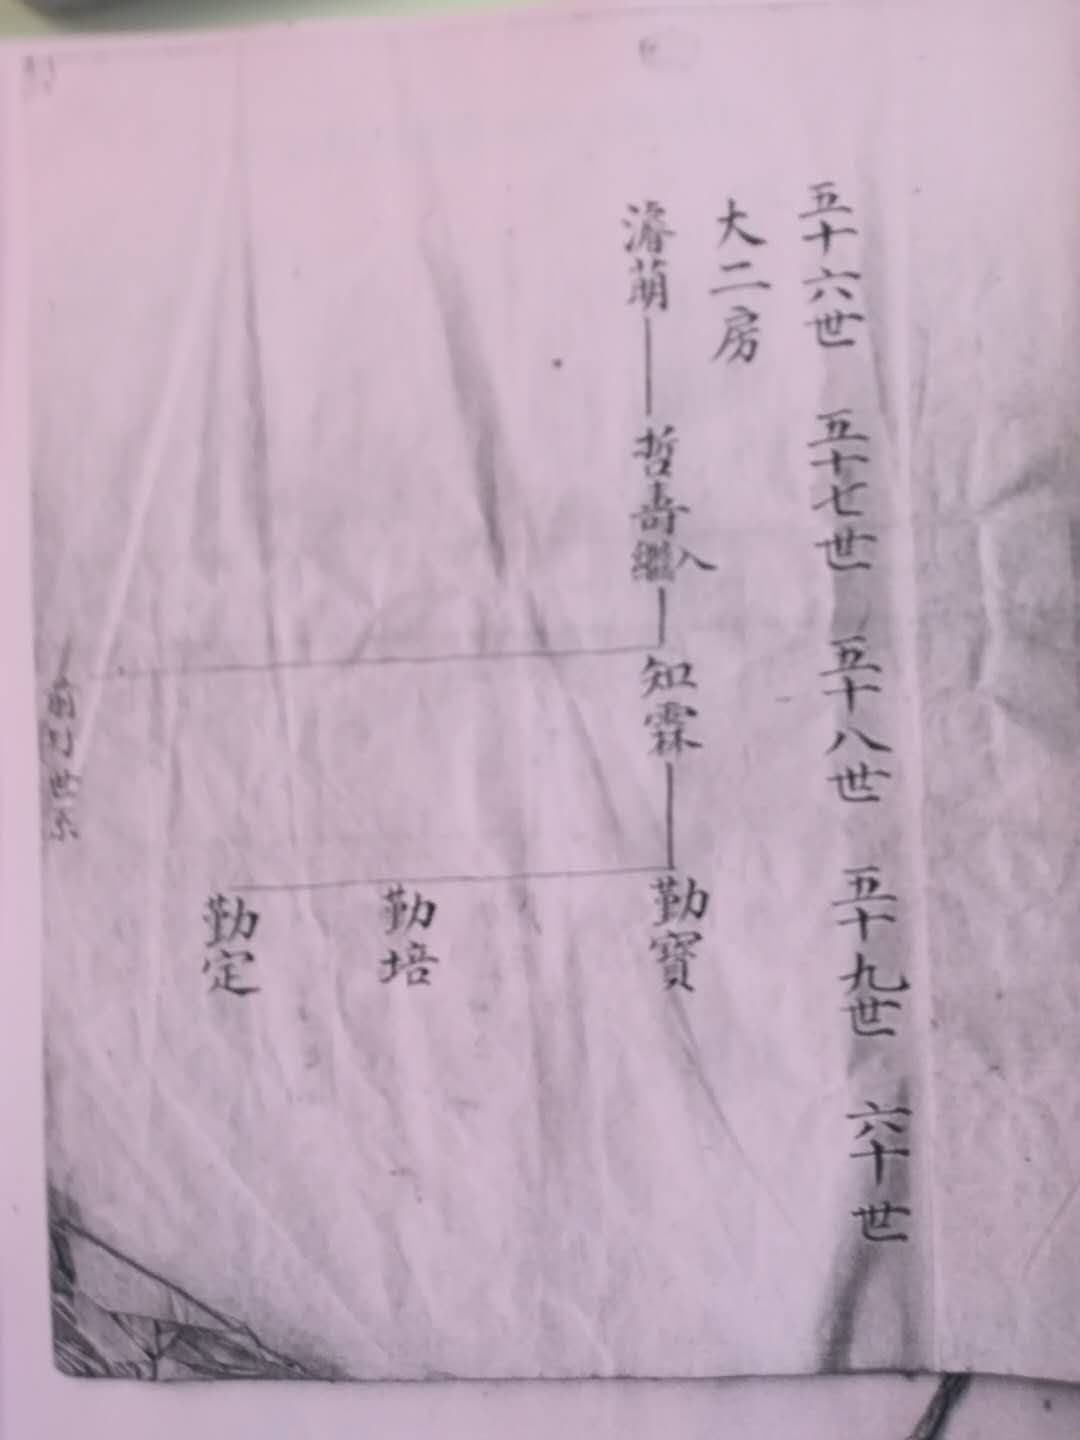 五十六世 五十七世 五十八世 五十九世 六十世
大二房
濬萌 哲壽入繼 知霖 勤寶
勤培
勤定
世系